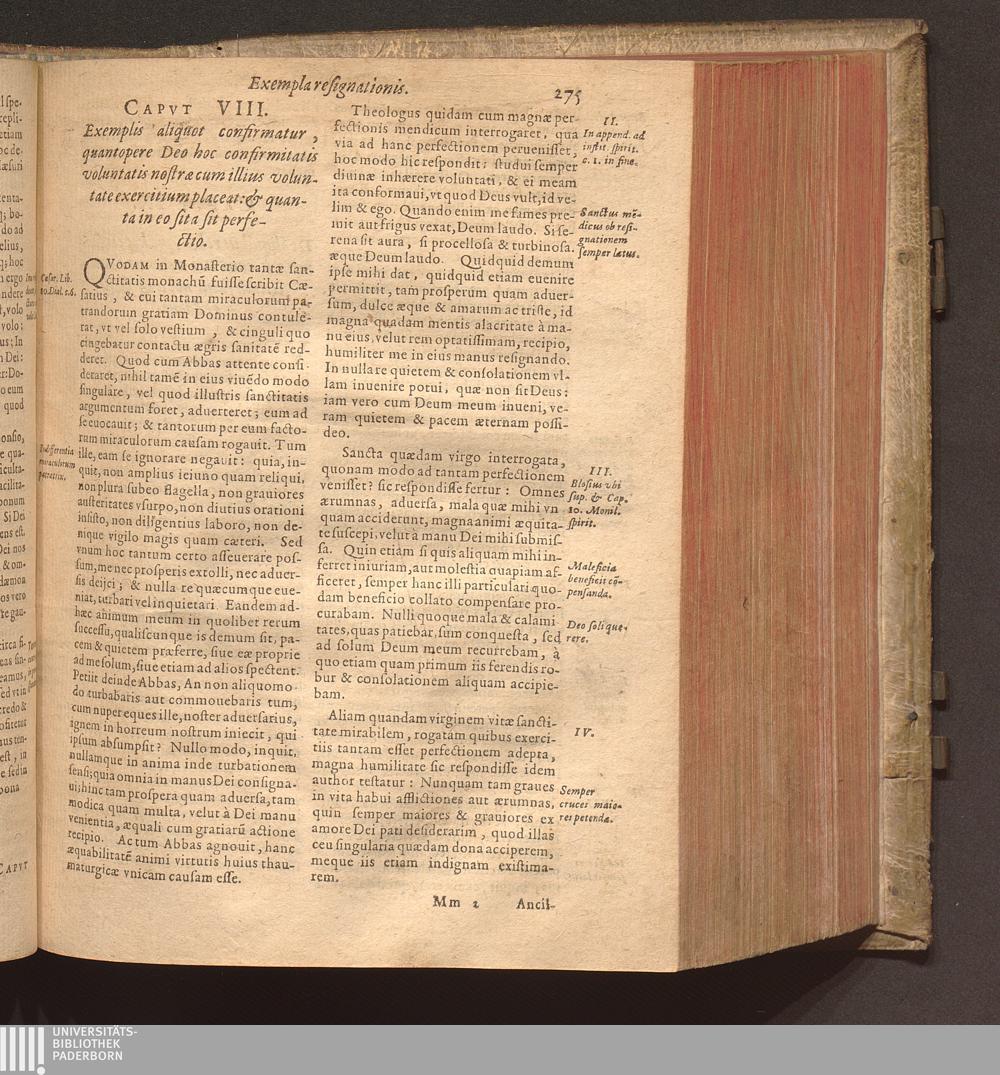 Exempla resignationis.
275
CAPVT VIII.
Exemplis aliquot confirmatur,
quantopere Deo hoc confirmitatis
voluntatis nostræ cum illius volun-
tate exercitium placeat: & quan-
ta in eo sita sit perfe-
ctio.
QVODAM in Monasterio tantæ san-
ctitatis monachū fuisse scribit Cæ-
satius, & cui tantam miraculorum pa-
trandorum gratiam Dominus contule-
rat, vt vel solo vestium, & cinguli quo
cingebatur contactu ægris sanitatē red-
deret. Quod cum Abbas attente consi-
deraret, nihil tamē in eius viuēdo modo
singulare, vel quod illustris sanctitatis
argumentum foret, aduerteret; eum ad
se euocauit; & tantorum per eum facto-
rum miraculorum causam rogauit. Tum
ille, eam se ignorare negauit: quia, in-
quit, non amplius ieiuno quam reliqui,
non plura subeo flagella, non grauiores
austeritates vsurpo, non diutius orationi
insisto, non diligentius laboro, non de-
nique vigilo magis quam cæteri. Sed
vnum hoc tantum certo asseuerare pos-
sum, me nec prosperis extolli, nec aduer-
sis deijci; & nulla re quæcumque eue-
niat, turbari vel inquietari. Eandem ad-
hæc animum meum in quoliber rerum
successu, qualiscunque is demum sit, pa-
cem & quietem præferre, siue eæ proprie
ad me solum, siue etiam ad alios spectent.
Petiit deinde Abbas, An non aliquomo-
do turbabaris aut commouebaris tum,
cum nuper eques ille, noster aduersarius,
ignem in horreum nostrum iniecit, qui
ipsum absumpsit? Nullo modo, inquit,
nullamque in anima inde turbationem
sensi; quia omnia in manus Dei consigna-
ui; hinc tam prospera quam aduersa, tam
modica quam multa, velut à Dei manu
venientia, æquali cum gratiarū actione
recipio. Actum Abbas agnouit, hanc
æquabilitatē animi virtutis huius thau-
maturgicæ vnicam causam esse.
Cæsar. Lib.
10. Dial. c. 6.
Indifferentia
miraculorum
patratrix.
Theologus quidam cum magnæ per-
fectionis mendicum interrogaret, qua
via ad hanc perfectionem peruenisset,
hoc modo hic respondit: studui semper
diuinæ inhærere voluntati, & ei meam
ita conformaui, vt quod Deus vult, id ve-
lim & ego. Quando enim me fames pre-
mit aut frigus vexat, Deum laudo. Si se-
rena sit aura, si procellosa & turbinosa.
æque Deum laudo. Quidquid demum
ipse mihi dat, quidquid etiam euenire
permittit, tam prosperum quam aduer-
sum, dulce æque & amarum ac triste, id
magna quadam mentis alacritate à ma-
nu eius, velut rem optatissimam, recipio,
humiliter me in eius manus resignando.
In nulla re quietem & consolationem vl-
lam inuenire potui, quæ non sit Deus:
iam vero cum Deum meum inueni, ve-
ram quietem & pacem æternam possi-
deo.
Sancta quædam virgo interrogata,
quonam modo ad tantam perfectionem
venisset? sic respondisse fertur: Omnes
ærumnas, aduersa, mala quæ mihi vn
quam acciderunt, magna animi æquita-
te suscepi, velut à manu Dei mihi submis-
sa. Quin etiam si quis aliquam mihi in-
ferret iniuriam, aut molestia quapiam af-
ficeret, semper hanc illi particulari quo-
dam beneficio collato compensare pro-
curabam. Nulli quoque mala & calami-
tates, quas patiebar, sum conquesta, sed
ad solum Deum meum recurrebam, à
quo etiam quam primum iis ferendis ro-
bur & consolationem aliquam accipie-
bam.
Aliam quandam virginem vitæ sancti-
tate mirabilem, rogatam quibus exerci-
tiis tantam esset perfectionem adepta,
magna humilitate sic respondisse idem
author testatur: Nunquam tam graues
in vita habui afflictiones aut ærumnas,
quin semper maiores & grauiores ex
amore Dei pati desiderarim, quod illas
ceu singularia quædam dona acciperem,
meque iis etiam indignam existima-
rem.
II.
In append. ad
instit. spirit.
c. 1. in fine.
Sanctus mē-
dicus ob resi-
gnationem
semper lætus.
III.
Blosius vbi
sup. & Cap.
10. Monil.
spirit.
Maleficia
beneficiis cō-
pensanda.
Deo soli que-
rere.
IV.
Semper
cruces maio-
res petendæ.
Mm 2 Ancil-
CAPVT
UNIVERSITÄTS-
BIBLIOTHEK
PADERBORN